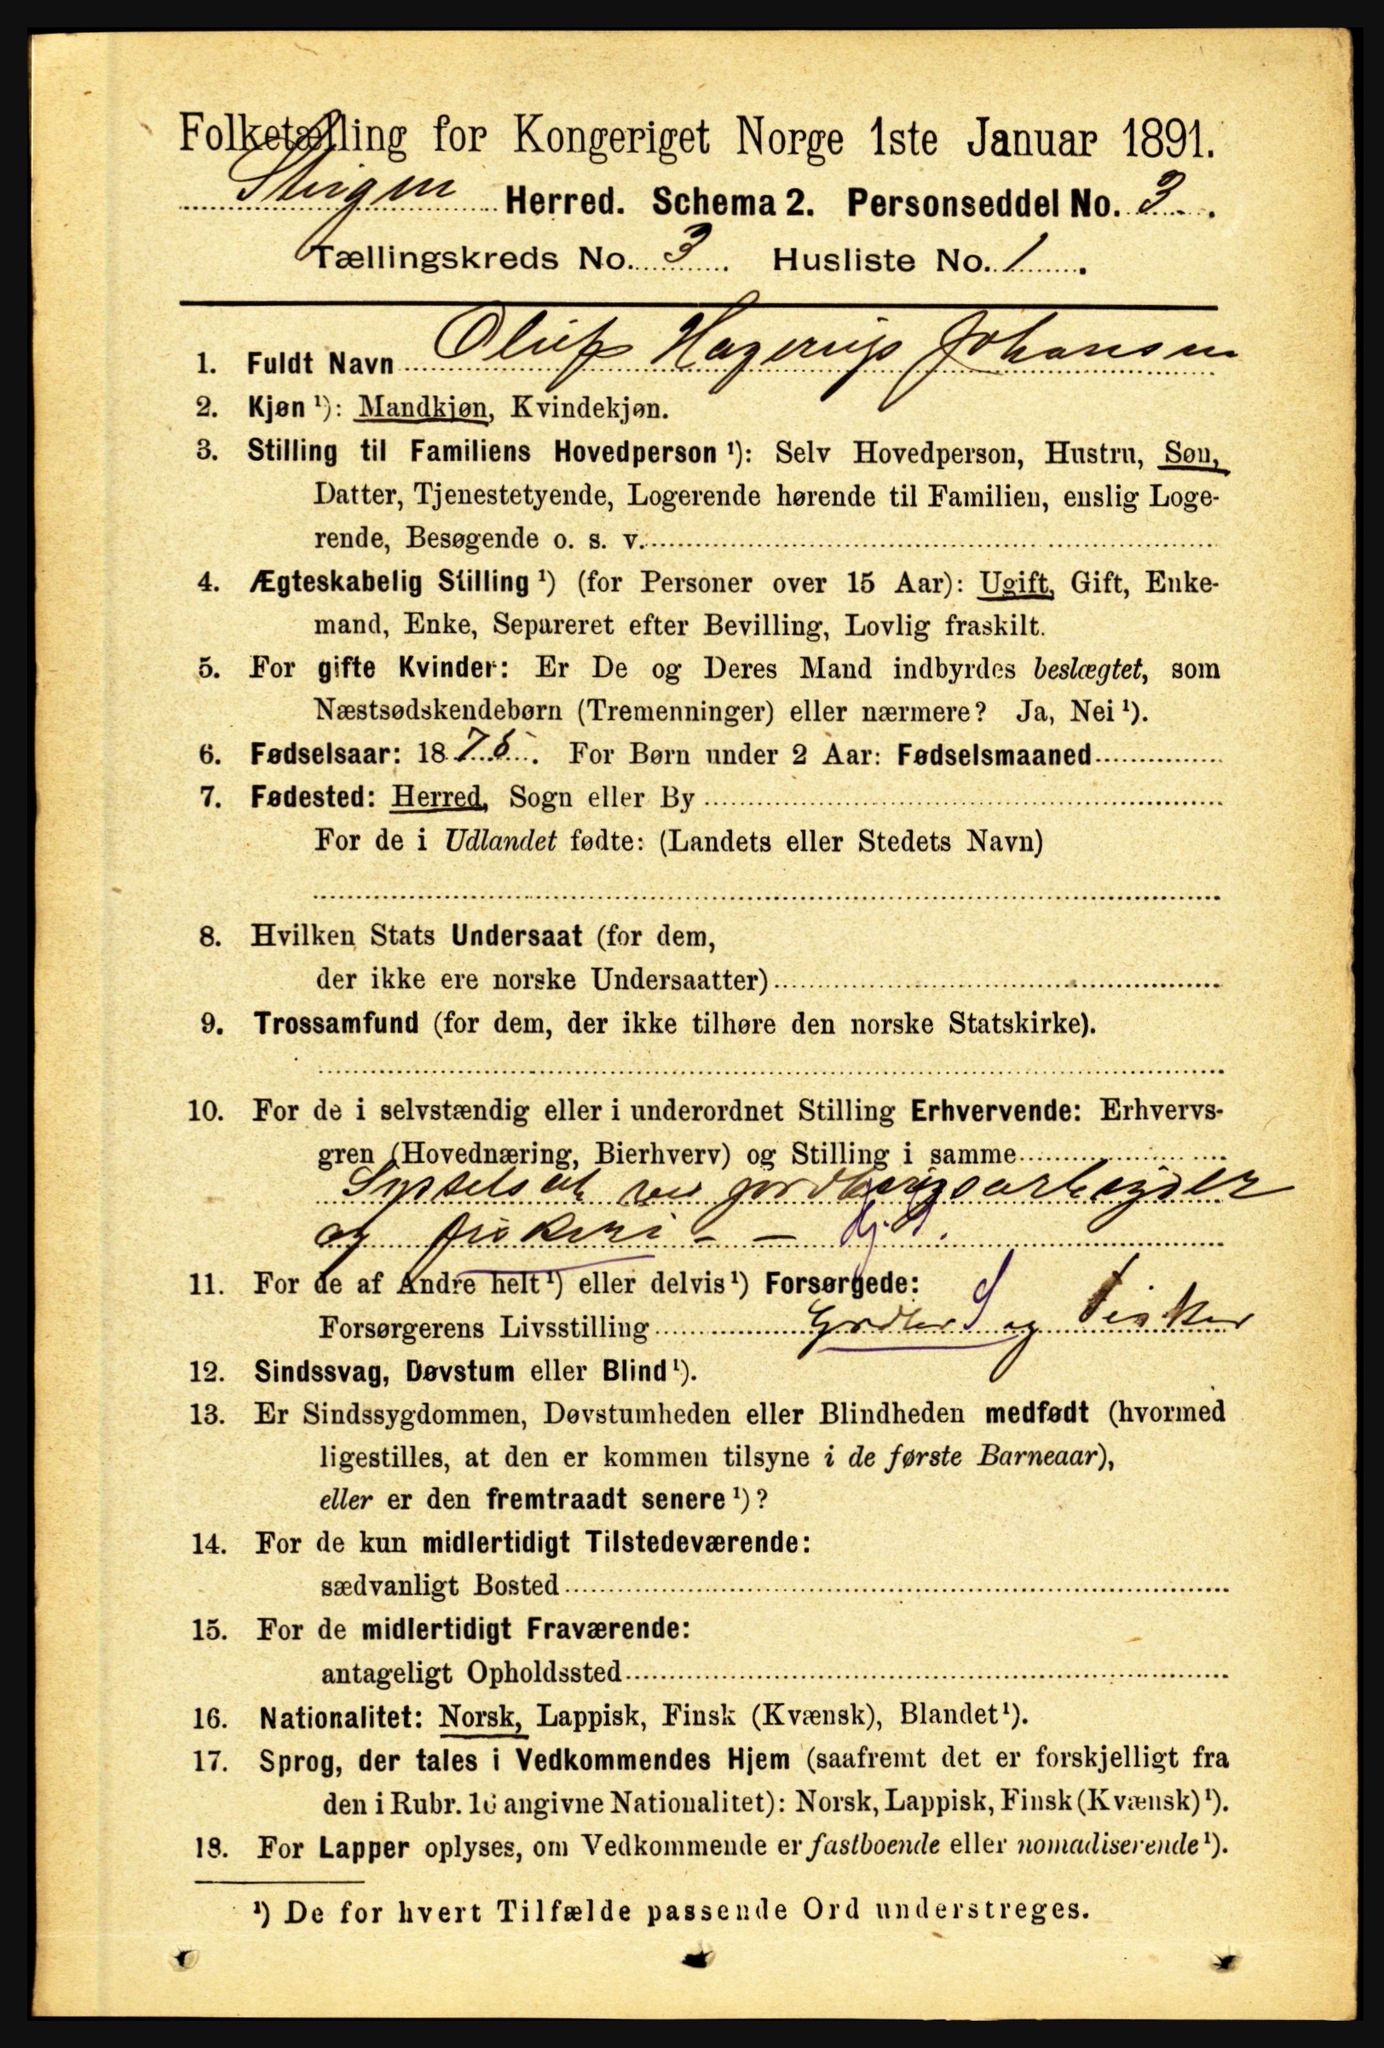 Folketælling for Kongeriget Norge 1ste Januar 1891.
Steigen Herred. Schema 2. Personseddel No. 3.
Tællingskreds No. 3. Husliste No. 1.
1. Fuldt Navn Oluf Hagerup Johansen
2. Kjøn ¹): Mandkjøn, Kvindekjøn.
3. Stilling til Familiens Hovedperson ¹): Selv Hovedperson, Hustru, Søn,
Datter, Tjenestetyende, Logerende hørende til Familien, enslig Loge-
rende, Besøgende o. s. v.
4. Ægteskabelig Stilling ¹) (for Personer over 15 Aar): Ugift, Gift, Enke-
mand, Enke, Separeret efter Bevilling, Lovlig fraskilt.
5. For gifte Kvinder: Er De og Deres Mand indbyrdes beslægtet, som
Næstsødskendebørn (Tremenninger) eller nærmere? Ja, Nei ¹).
6. Fødselsaar: 1875. For Børn under 2 Aar: Fødselsmaaned
7. Fødested: Herred, Sogn eller By
For de i Udlandet fødte: (Landets eller Stedets Navn)
8. Hvilken Stats Undersaat (for dem,
der ikke ere norske Undersaatter)
9. Trossamfund (for dem, der ikke tilhøre den norske Statskirke).
10. For de i selvstændig eller i underordnet Stilling Erhvervende: Erhvervs-
gren (Hovednæring, Bierhverv) og Stilling i samme
Sysselsat ved jordbrugsarbeyder
og fiskeri - -
11. For de af Andre helt ¹) eller delvis ¹) Forsørgede:
Forsørgerens Livsstilling S og Fisker
12. Sindssvag, Døvstum eller Blind ¹).
13. Er Sindssygdommen, Døvstumheden eller Blindheden medfødt (hvormed
ligestilles, at den er kommen tilsyne i de første Barneaar),
eller er den fremtraadt senere ¹)?
14. For de kun midlertidigt Tilstedeværende:
sædvanligt Bosted
15. For de midlertidigt Fraværende:
antageligt Opholdssted
16. Nationalitet: Norsk, Lappisk, Finsk (Kvænsk), Blandet ¹).
17. Sprog, der tales i Vedkommendes Hjem (saafremt det er forskjelligt fra
den i Rubr. 16 angivne Nationalitet): Norsk, Lappisk, Finsk (Kvænsk) ¹).
18. For Lapper oplyses, om Vedkommende er fastboende eller nomadiserende ¹).
¹) De for hvert Tilfælde passende Ord understreges.